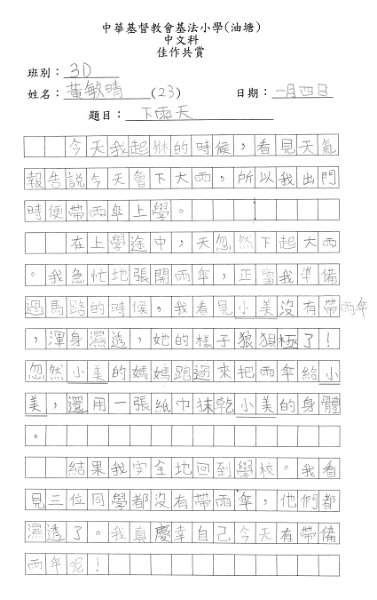 中華基督教會基法小學(油塘)
中文科
佳作共賞
班別：3D
姓名：黃敏晴(23) 日期：一月四日
題目：下雨天
今天我起牀的時候，看見天氣
報告說今天會下大雨，所以我出門
時便帶雨伞上學。
在上學途中，天忽然下起大雨
。我急忙地張開雨伞，正當我準備
過馬路的時候，我看見小美沒有帶雨伞
，渾身濕透，她的樣子狼狽極了！
忽然小美的媽媽跑過來把雨伞給小
美，還用一張紙巾抹乾小美的身體
。
結果我安全地回到學校。我看
見三位同學都沒有帶雨伞，他們都
濕透了。我真慶幸自己今天有帶備
雨伞呢！